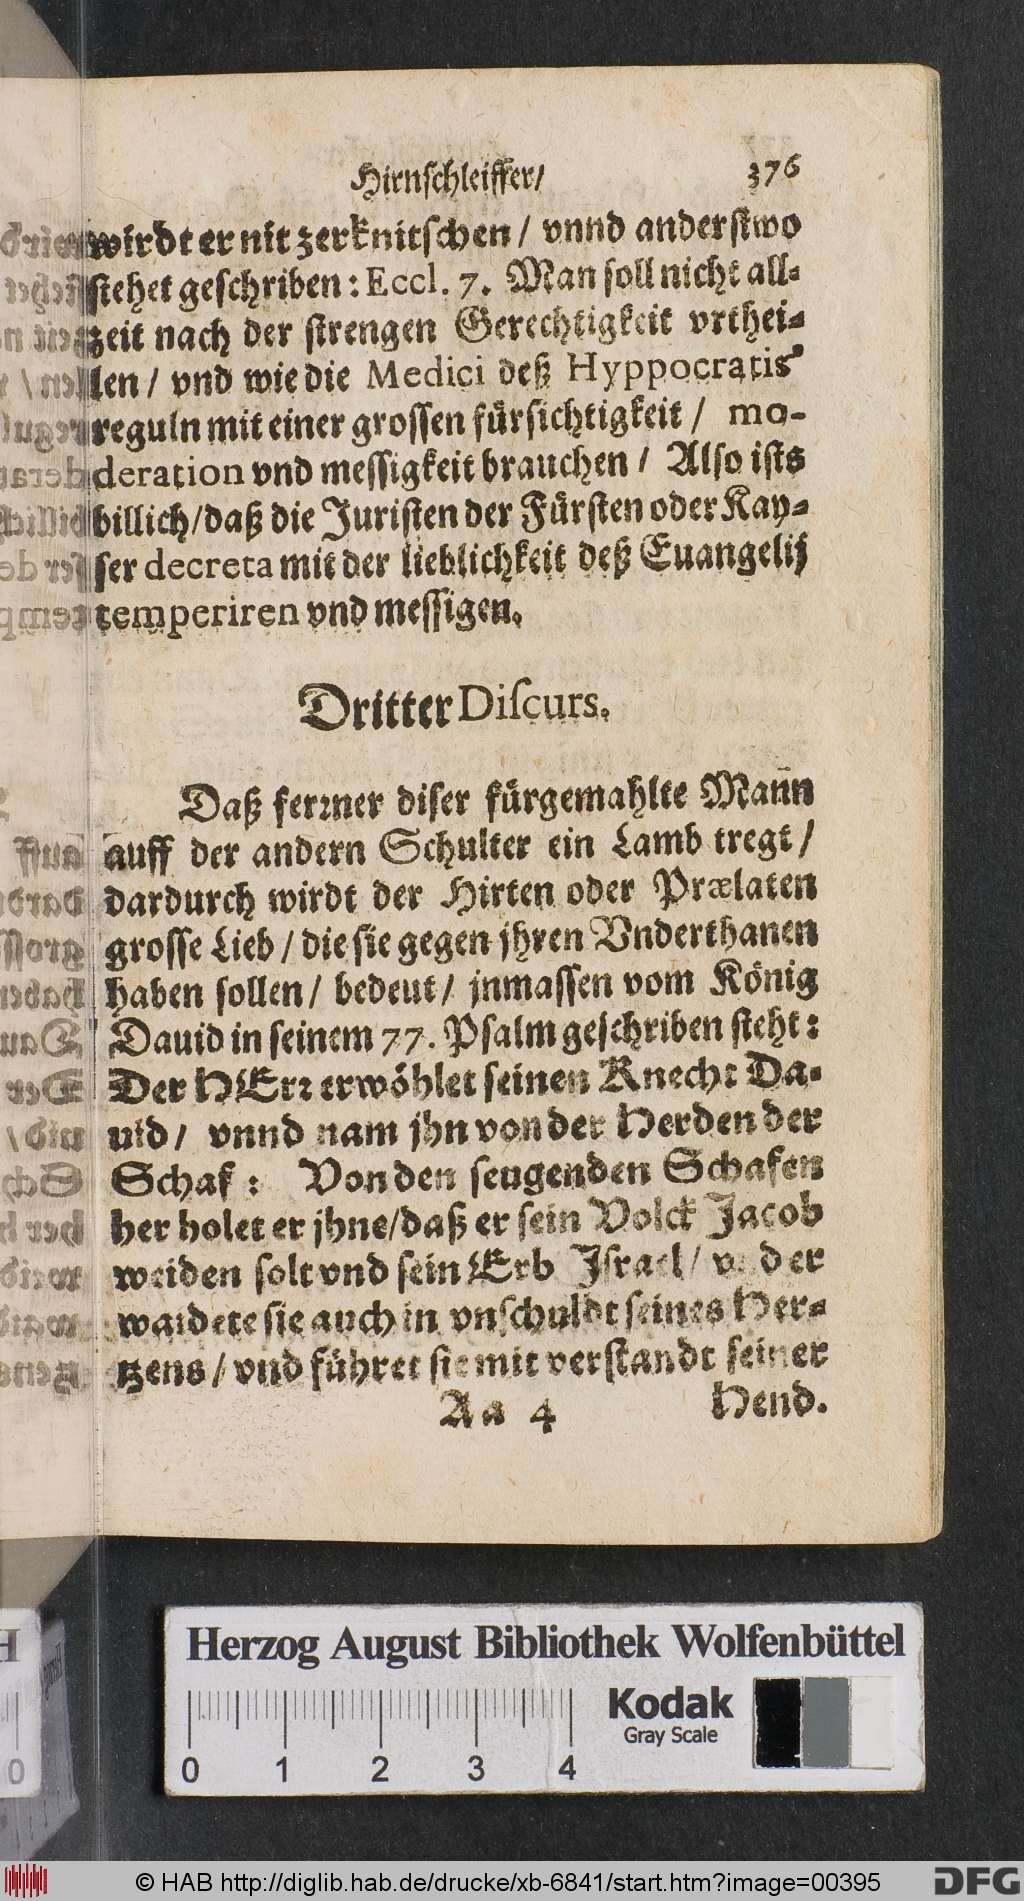 Hirnschleiffer/ 376
wirdt er nit zerknitschen / vnnd anderstwo
stehet geschriben: Eccl. 7. Man soll nicht all-
zeit nach der strengen Gerechtigkeit vrthei-
len / vnd wie die Medici deß Hyppocratis
reguln mit einer grossen fürsichtigkeit / mo-
deration vnd messigkeit brauchen / Also ists
billich/daß die Juristen der Fürsten oder Kay-
ser decreta mit der lieblichkeit deß Euangelij
temperiren vnd messigen.
Dritter Discurs.
Daß ferꝛner diser fürgemahlte Mañn
auff der andern Schulter ein Lamb tregt /
dardurch wirdt der Hirten oder Prælaten
grosse Lieb / die sie gegen jhren Vnderthanen
haben sollen / bedeut / jnmassen vom König
Dauid in seinem 77. Psalm geschriben steht:
Der HErꝛ erwöhlet seinen Knecht Da-
uid / vnnd nam jhn von der Herden der
Schaf: Von den seugenden Schafen
her holet er jhne/daß er sein Volck Jacob
weiden solt vnd sein Erb Israel / vnd er
waidete sie auch in vnschuldt seines Her-
tzens / vnd führet sie mit verstandt seiner
Aa 4 Hend.
Herzog August Bibliothek Wolfenbüttel
Kodak
Gray Scale
0 1 2 3 4
© HAB http://diglib.hab.de/drucke/xb-6841/start.htm?image=00395
DFG